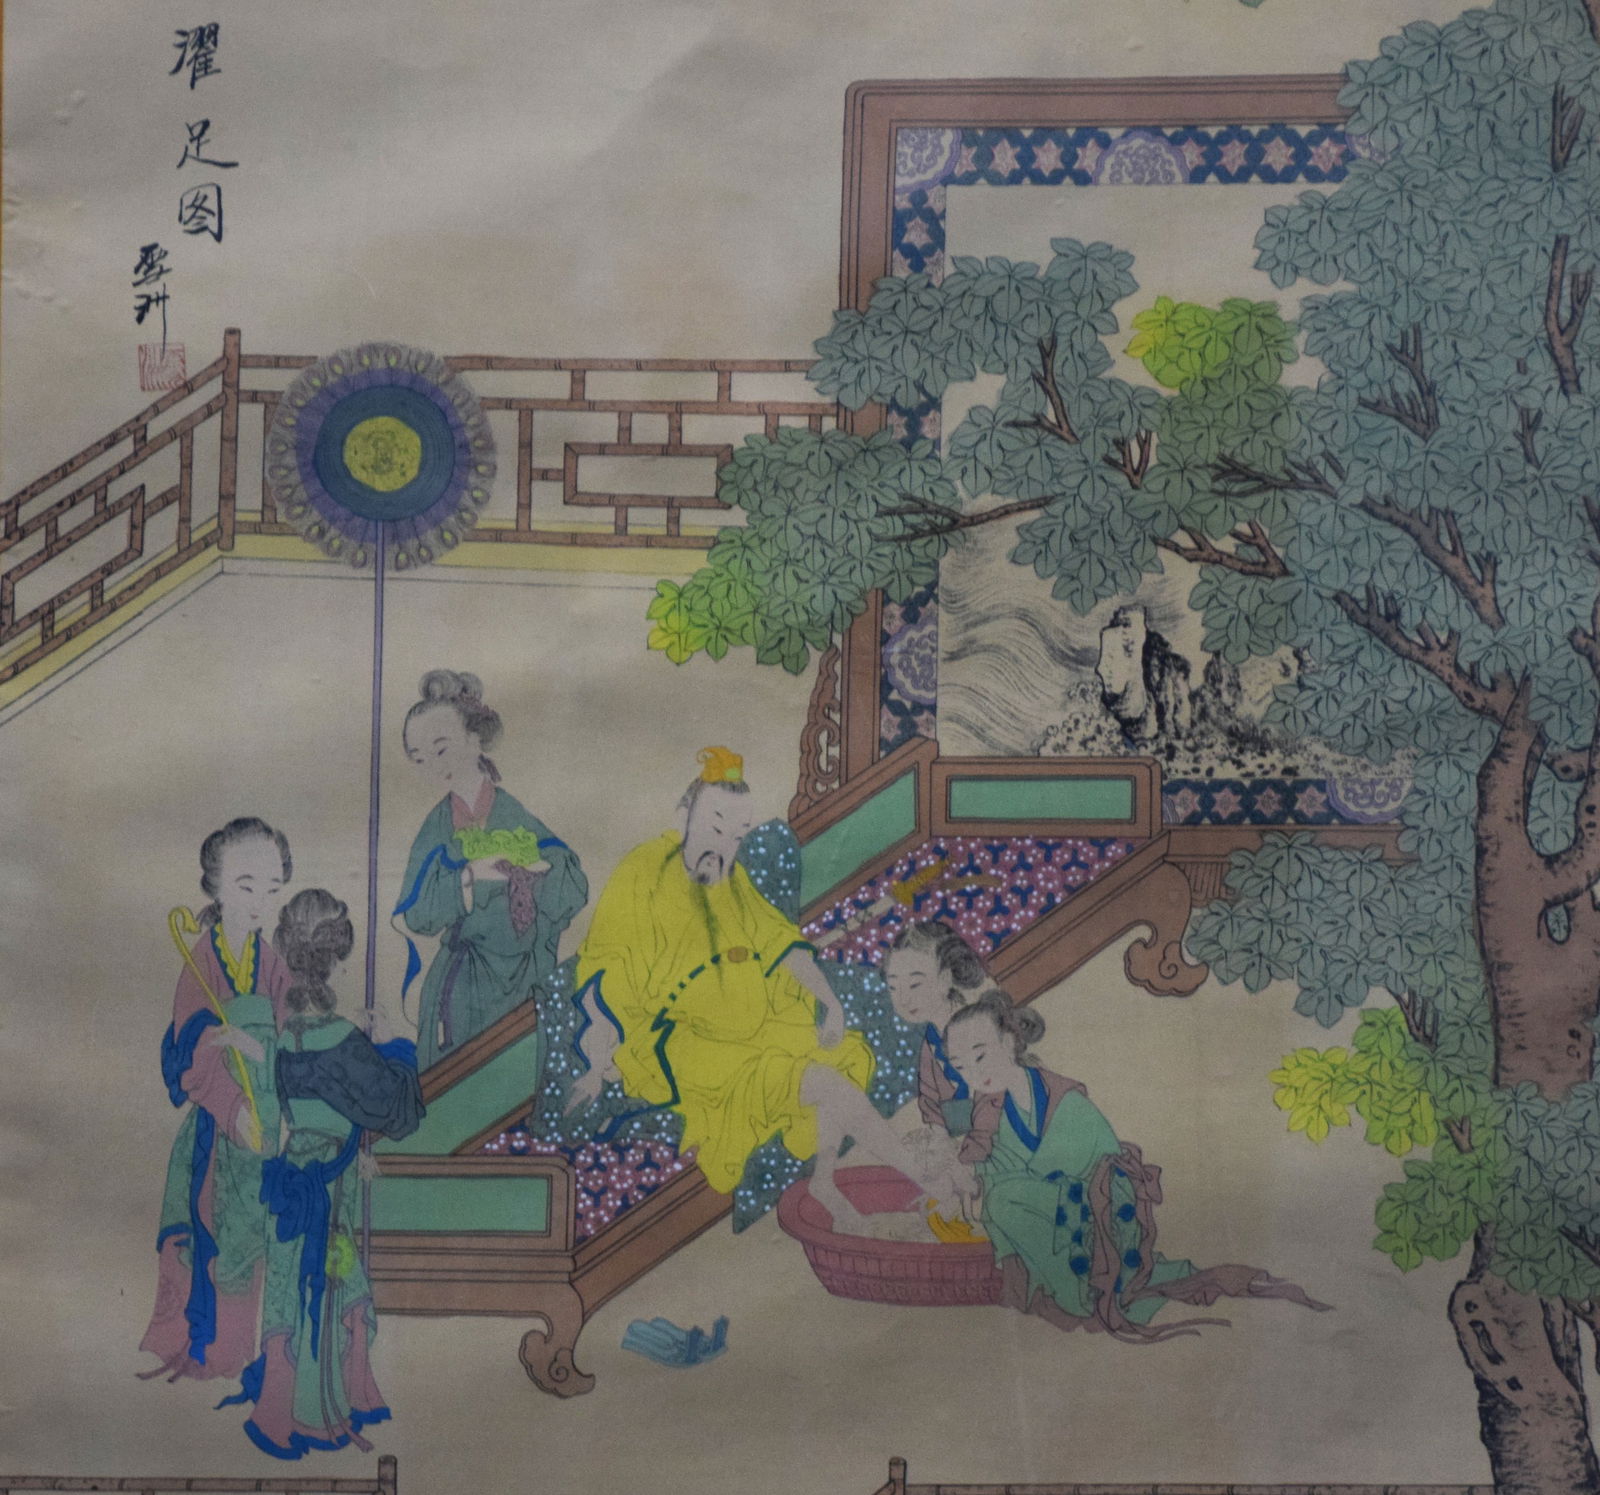 濯足图
雪洲